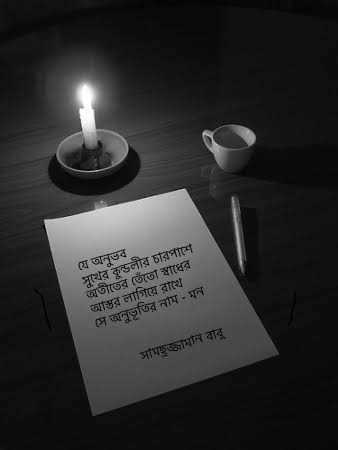 যে অনুভব
সুখের কুন্ডলীর চারপাশে
অতীতের তেঁতো স্বাধের
আস্তর লাগিয়ে রাখে
সে অনুভূতির নাম - মন
সামছুজ্জামান বাবু